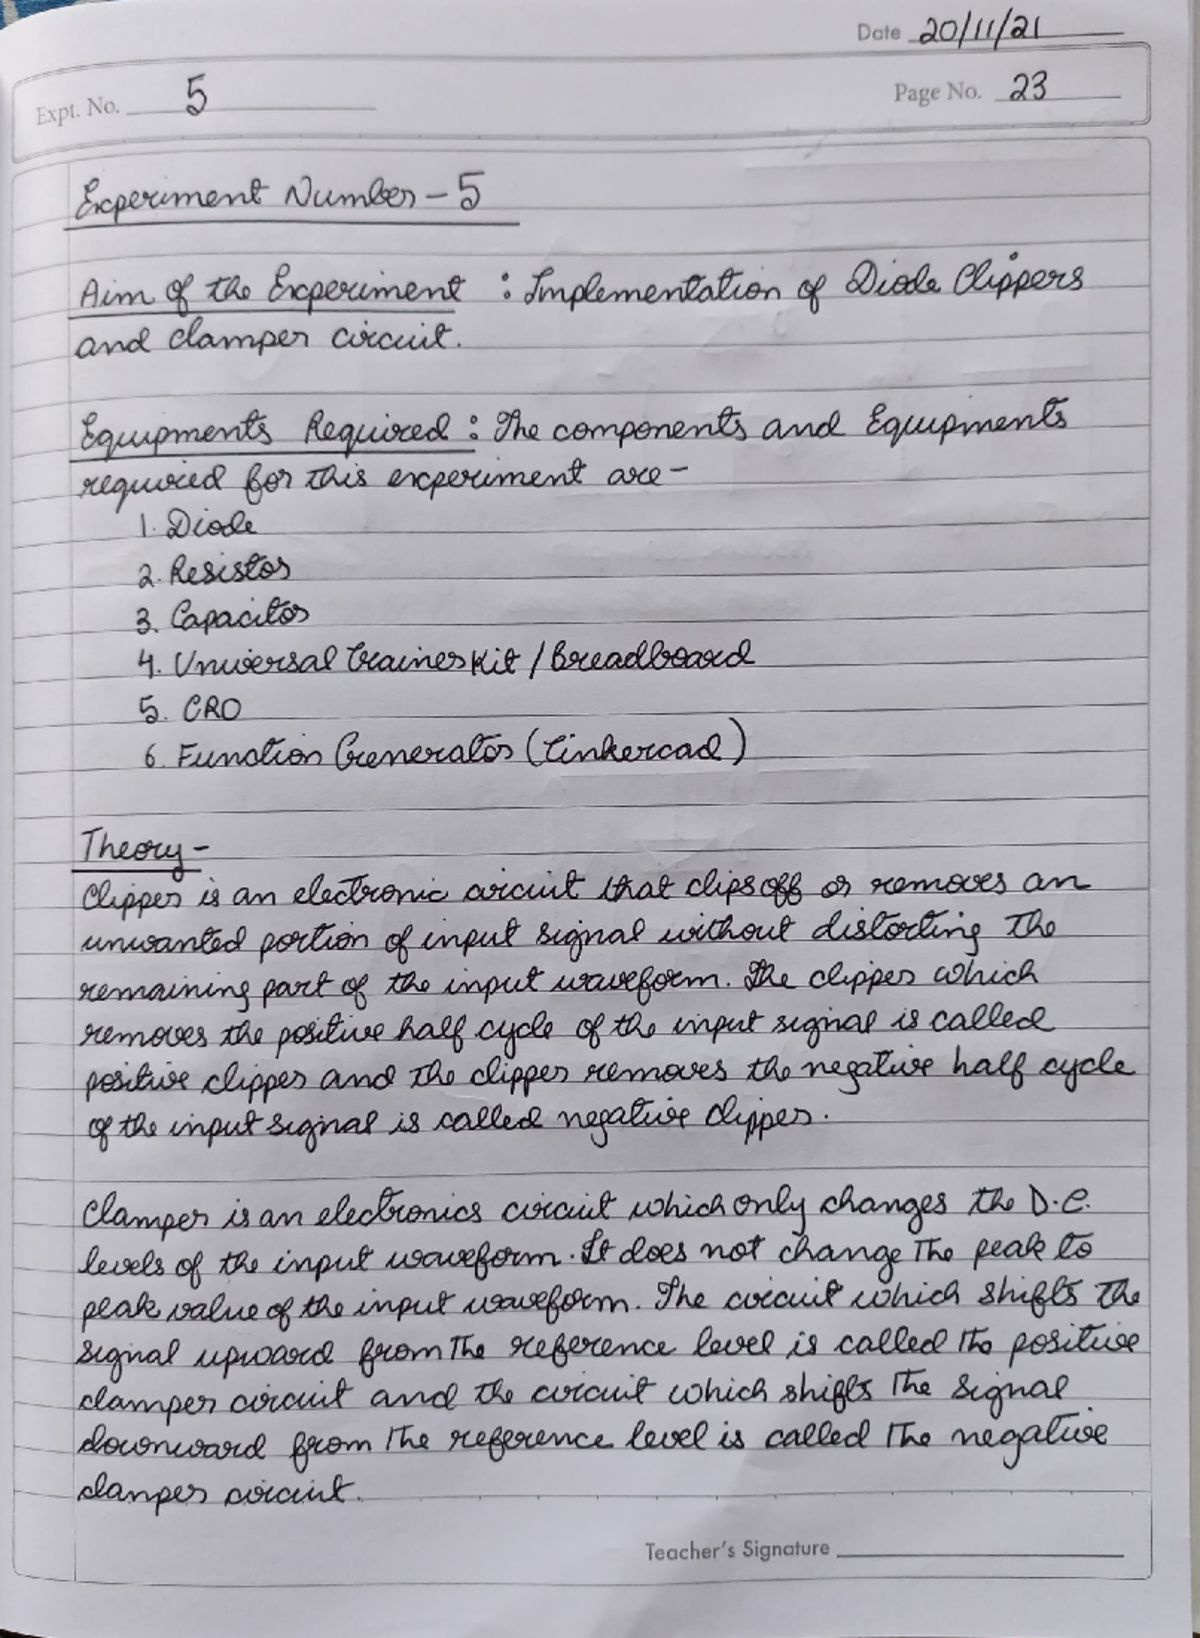 Date 20/11/21
Expt. No. 5
Page No. 23
Experiment Number - 5
Aim of the Experiment : Implementation of Diode Clippers
and clamper circuit.
Equipments Required : The components and Equipments
required for this experiment are -
1. Diode
2. Resistor
3. Capacitor
4. Universal Trainer Kit / Breadboard
5. CRO
6. Function Generator (Tinkercad)
Theory -
Clipper is an electronic circuit that clips off or removes an
unwanted portion of input signal without distorting the
remaining part of the input waveform. The clipper which
removes the positive half cycle of the input signal is called
positive clipper and the clipper removes the negative half cycle
of the input signal is called negative clipper.
Clamper is an electronics circuit which only changes the D.C.
levels of the input waveform. It does not change the peak to
peak value of the input waveform. The circuit which shifts the
signal upward from the reference level is called the positive
clamper circuit and the circuit which shifts the signal
downward from the reference level is called the negative
clamper circuit.
Teacher's Signature